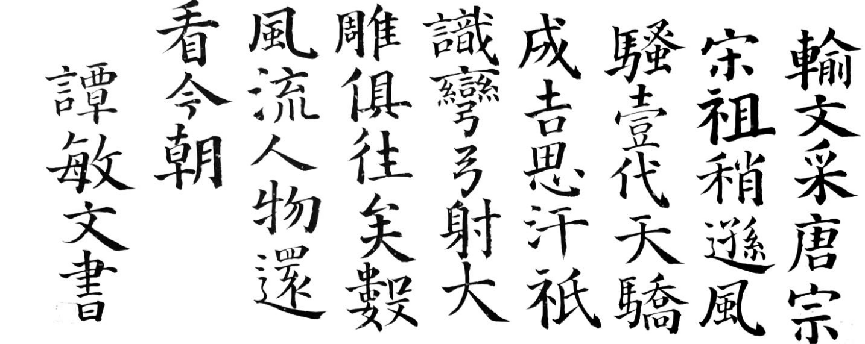 輸文采唐宗
宋祖稍遜風
騷壹代天驕
成吉思汗祇
識彎弓射大
雕俱往矣數
風流人物還
看今朝
譚敏文書